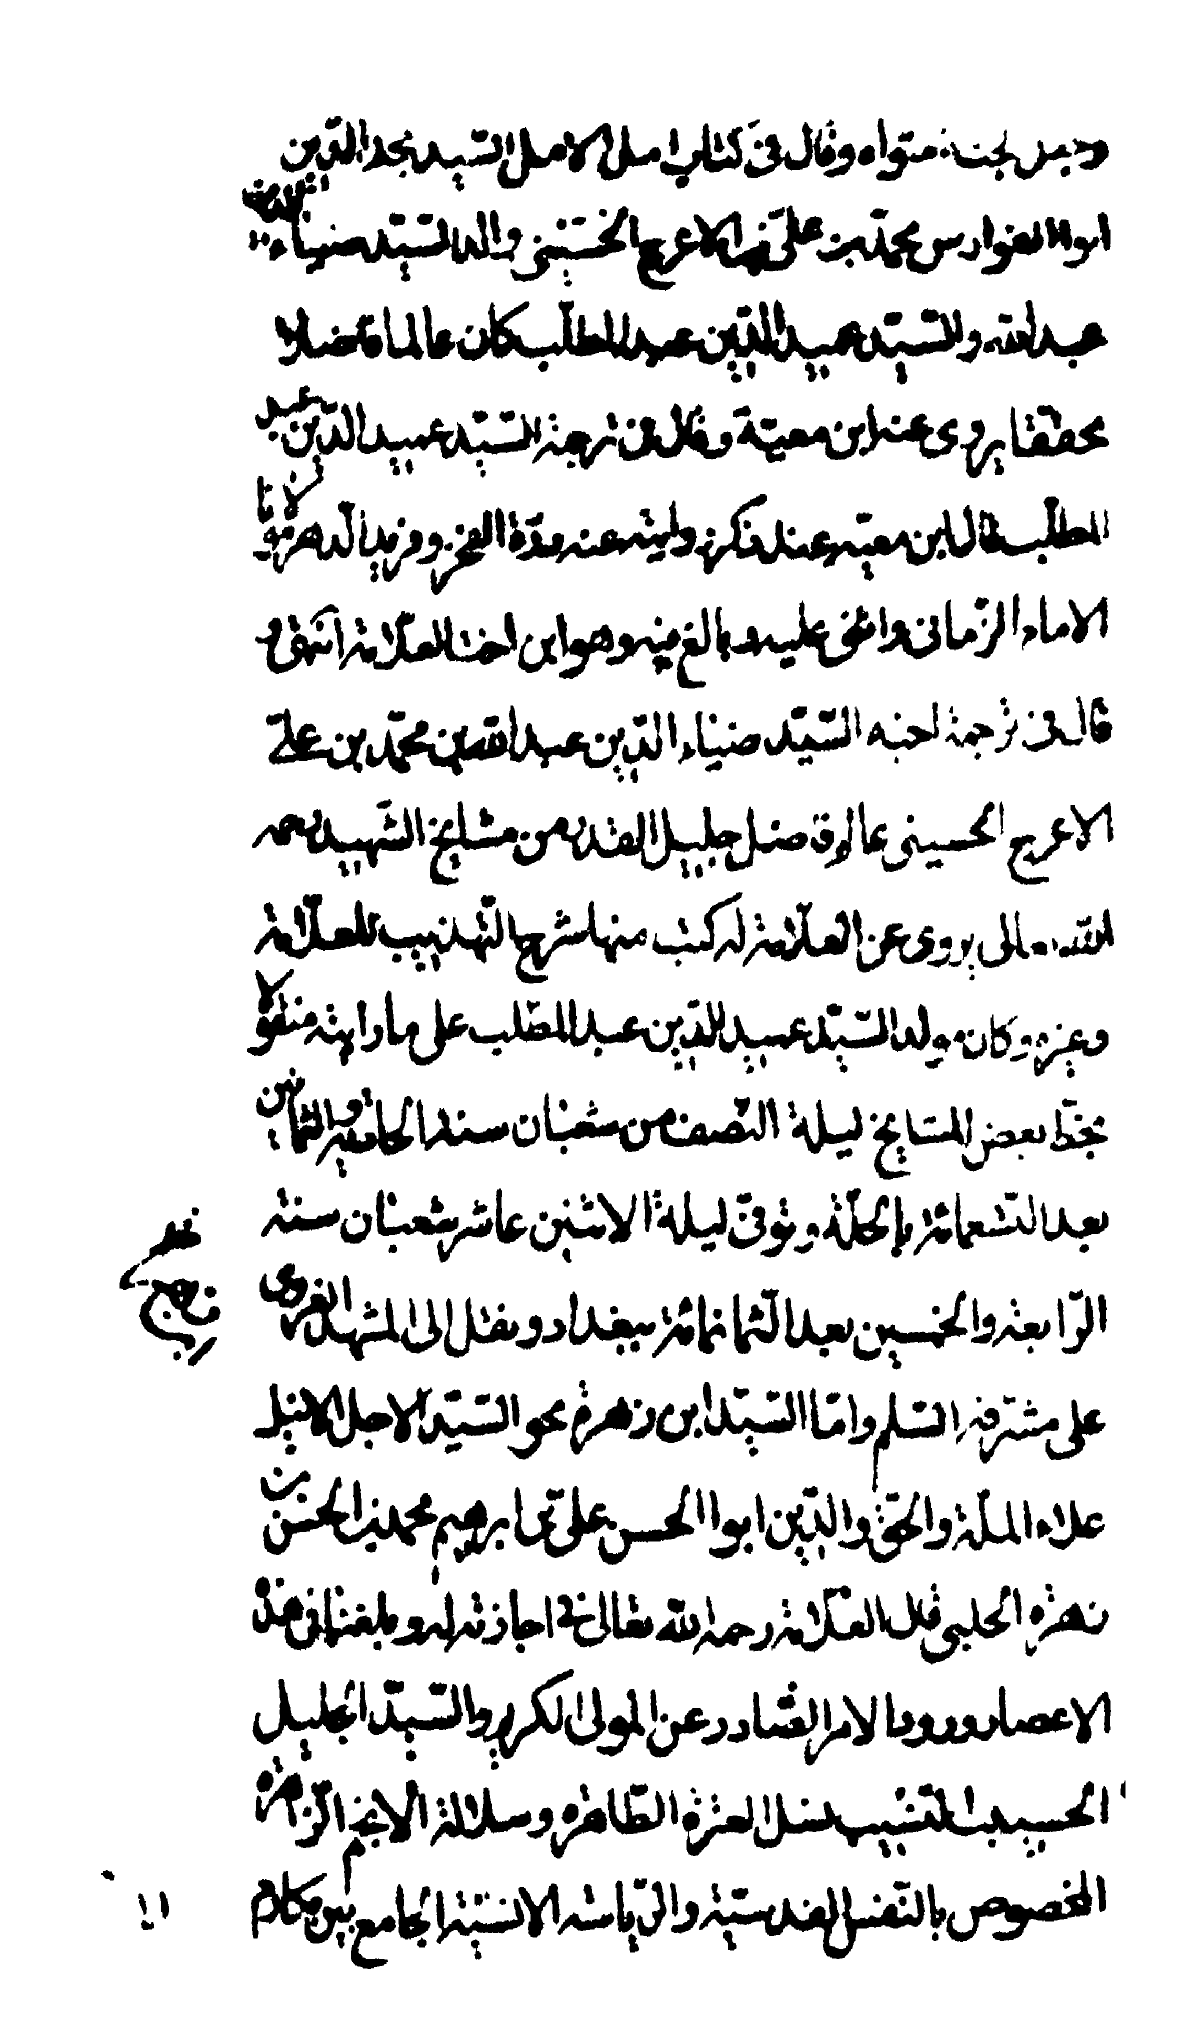 وجعل الجنة مثواه وقال في كتاب امل الامل السيد مجد الدين
ابو الفوارس محمد بن علي بن الاعرج الحسيني والد السيد ضياء الدين
عبد الله والسيد عميد الدين عبد المطلب كان عالما فاضلا
محققا يروى عنه ابن معية وقال في ترجمة السيد عميد الدين عبد
المطلب قال ابن معيه عند ذكره ورايته عنه درة الفخر وفريد الدهر مولانا
الامام الرباني واثنى عليه وبالغ فيه وهو ابن اخت العلامة انتهى و
قال في ترجمة اخيه السيد ضياء الدين عبد الله بن محمد بن علي
الاعرج الحسيني عالم فاضل جليل القدر من مشايخ الشهيد رحمه
الله تعالى يروى عن العلامة له كتب منها شرح التهذيب للعلامة
وغيره وكان مولد السيد عميد الدين عبد المطلب على ما رايته منقولا
بخط بعض المشايخ ليلة النصف من شعبان سنة الحادية والثمانين
بعد الستمائة بالحلة وتوفى ليلة الاثنين عاشر شعبان سنة
الرابعة والخمسين بعد السبعمائة ببغداد ونقل الى المشهد الغروى
على مشرفه السلم واما السيد ابن زهرة نحو السيد الاجل الانبل
علاء الملة والحق والدين ابو الحسن علي بن ابرهيم محمد بن الحسن بن
زهره الحلبي قال العلامة رحمه الله تعالى في اجازته له وبلغنا في هذه
الاعصار ورود الامر الصادر عن المولى الكريم والسيد الجليل
الحسيب النسيب نسل العترة الطاهره وسلالة الانجم الزاهره
المخصوص بالنفس القدسية والرياسة الانسية الجامع بين مكارم